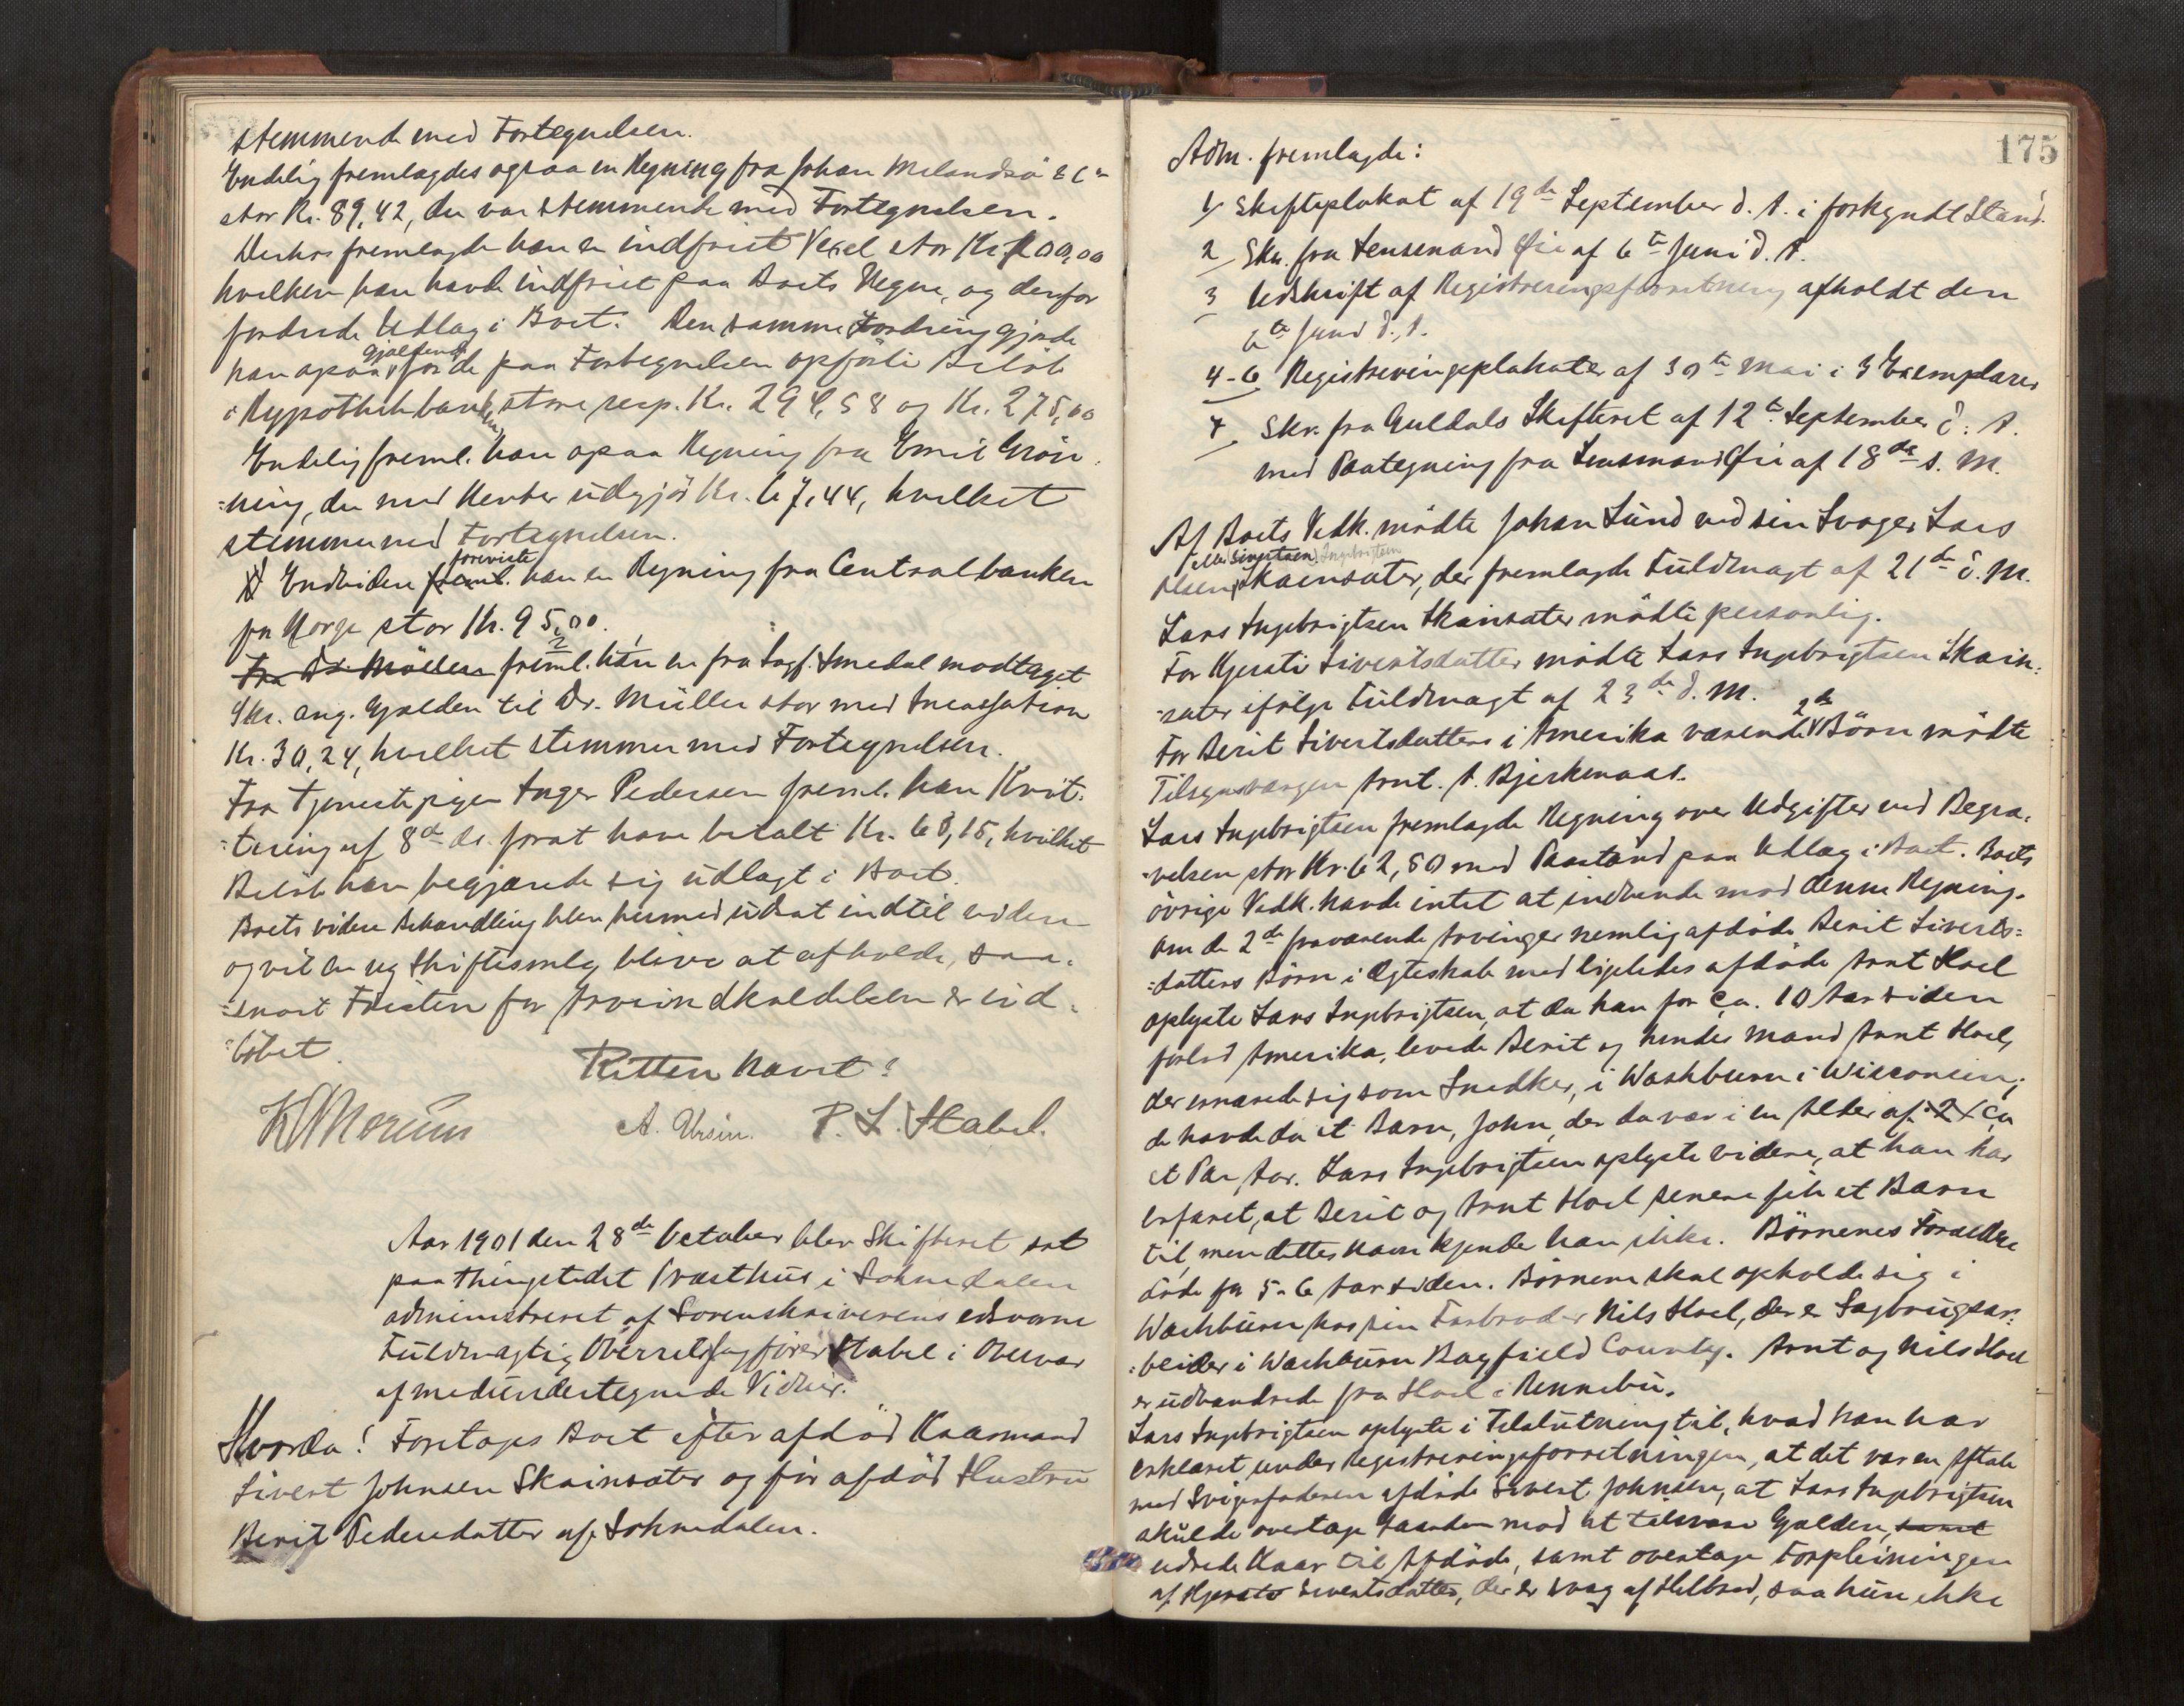 stemmende med Fortegnelsen.
Endelig fremlagdes ogsaa en Regning fra Johan Melandsö & Co
stor Kr. 89,42, der var stemmende med Fortegnelsen.
Derhos fremlagde han en indfriet Vexel stor Kr. 00,00
hvilken han havde indfriet paa Boets Vegne, og derfor
fordrede Udlæg i Boet. Den samme Fordring gjorde
han ogsaa gjældende for de paa Fortegnelsen opförte Belöb
i Hypothekbanken, store resp. Kr. 294,58 og Kr. 275,00
Endelig freml. han ogsaa Regning fra Emil Grön-
=ning, der med Renter udgjör Kr. 67,44, hvilket
stemmer med Fortegnelsen.
Endvidere foreviste freml. han en Regning fra Centralbanken
for Norge stor Kr. 95,00.
Fra Dr. Möller freml. han en fra Sagf. Smedal modtaget
Skr. ang. Gjælden til Dr. Müller stor med Incassation
Kr. 30,24, hvilket stemmer med Fortegnelsen.
Fra Tjenestepigen Inger Pedersen freml. han Kvit-
=tering af 8de ds. for at have betalt Kr. 63,15, hvilket
Belöb han begjærede sig udlagt i Boet.
Boets videre Behandling blev hermed udsat indtil videre
og vil en ny Skiftesmlg blive at afholde, saa-
=snart Fristen for Arveindkaldelsen er ud-
=löbet.
Retten hævet:
A. Ursin. P. L. Stabel.
Aar 1901 den 28de October blev Skifteret sat
paa Thingstedet Præsthus i Soknedalen
administreret af Sorenskriverens edsvorne
Fuldmægtig Overretssagförer Stabel i Overvær
af medundertegnede Vidner.
Hvorda: Foretoges Boet efter afdöd Kaarmand
Sivert Johnsen Skainsæter og för afdöd Hustru
Berit Pedersdatter af Soknedalen.
175
Adm. fremlagde:
1/ Skifteplakat af 19de September d. A. i forkyndt Stand.
2/ Skr. fra Lensmand Öie af 6te Juni d. A.
3 Udskrift af Registreringsforretning afholdt den
6te Juni d. A.
4-6 Registreringsplakater af 30te Mai i 3 Exemplarer
7 Skr. fra Guldals Skifteret af 12te September d. A.
med Paategning fra Lensmand Öie af 18de s. M.
Af Boets Vedk. mödte Johan Lund ved sin Svoger Lars
Olsen (eller Sivertsen) Ingebrigtsen Skainsæter, der fremlagde Fuldmagt af 21de d. M.
Lars Ingebrigtsen Skainsæter mödte personlig.
For Kjersti Sivertsdatter mödte Lars Ingebrigtsen Skain-
=sæter ifölge Fuldmagt af 23de d. M.
For Berit Sivertsdatters i Amerika værende 2de Börn mödte
Tilsynsværgen Arnt. A. Bjerkenaas.
Lars Ingebrigtsen fremlagde Regning over Udgifter ved Begra-
=velsen stor Kr. 62,50 med Paastand paa Udlæg i Boet. Boets
övrige Vedk. havde intet at indvende mod denne Regning.
Om de 2de fraværende Arvinger nemlig afdöde Berit Siverts-
=datters Börn i Ægteskab med ligeledes afdöde Arnt Hoel
oplyste Lars Ingebrigtsen, at da han for ca. 10 Aar siden
forlod Amerika, levede Berit og hendes Mand Arnt Hoel,
der ernærede sig som Snedker, i Washburn i Wisconsin;
de havde da et Barn, John, der da var i en Alder af 2 ca
et Par Aar. Lars Ingebrigtsen oplyste videre, at han har
erfaret, at Berit og Arnt Hoel senere fik et Barn
til, men dettes Navn kjender han ikke. Börnenes Forældre
döde for 5-6 Aar siden. Börnene skal opholde sig i
Washburn hos sin Farbroder Nils Hoel, der er Sagbrugsar-
=beider i Washburn Bayfield County. Arnt og Nils Hoel
er udvandrede fra Hoel i Rennebu.
Lars Ingebrigtsen oplyste i Tilslutning til, hvad han har
erklæret under Registreringsforretningen, at det var en Aftale
med Svigerfaderen afdöde Sivert Johnsen, at Lars Ingebrigtsen
skulde overtage Gaarden mod at tilsvare Gjælden, samt
udrede Kaar til Afdöde, samt overtage Forpleiningen
af Kjersti Sivertsdatter, der er svag af Helbred, saa hun ikke